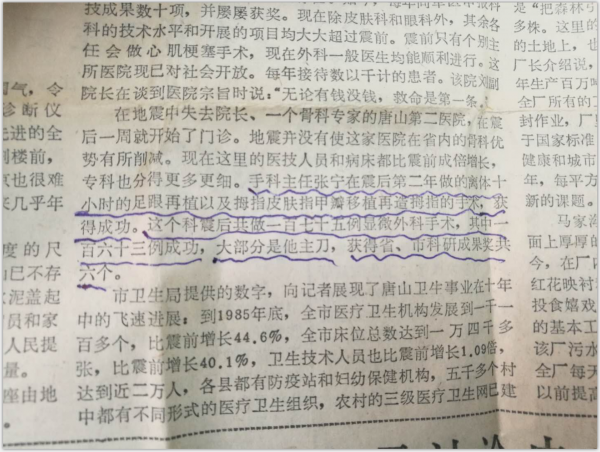 技成果数十项，并屡屡获奖。现在除皮肤科和眼科外，其余各
科的技术水平和开展的项目均大大超过震前。震前只有个别主
任会做心肌梗塞手术，现在外科一般医生均能顺利进行。这
所医院现已对社会开放。每年接待数以千计的患者。该院刘副
院长在谈到医院宗旨时说："无论有钱没钱，救命是第一条。"
在地震中失去院长、一个骨科专家的唐山第二医院，在震
后一周就开始了门诊。地震并没有使这家医院在省内的骨科优
势有所削减。现在这里的医技人员和病床都比震前成倍增长，
专科也分得更多更细。手科主任张宁在震后第二年做的离体十
小时的足跟再植以及拇指皮肤指甲瓣移植再造拇指的手术，获
得成功。这个科震后共做一百七十五例显微外科手术，其中一
百六十三例成功，大部分是他主刀，获得省、市科研成果奖共
六个。
市卫生局提供的数字，向记者展现了唐山卫生事业在十年
中的飞速进展：到1985年底，全市医疗卫生机构发展到一千一
百多个，比震前增长44.6%，全市床位总数达到一万四千多
张，比震前增长40.1%，卫生技术人员也比震前增长1.09倍，
达到近二万人，各县都有防疫站和妇幼保健机构，五千多个村
中都有不同形式的医疗卫生组织，农村的三级医疗卫生网已建
气，令
诊断仪
先进的全
楼前，
也很难
几乎年
度的尺
已不存
泥盖起
员和家
人民提
量。
座由地
。
是"把森林
多株。这里的
的土地上，也
厂长介绍说，
年生产百万吨
全厂所有的
封作业，厂
于国家标准
健康和城市
年，每平方
新的课题。
马家沟
面上厚厚的
今，在厂内
红花映衬
投食嬉戏
的基本工
该厂污水
全厂每天
以前提高